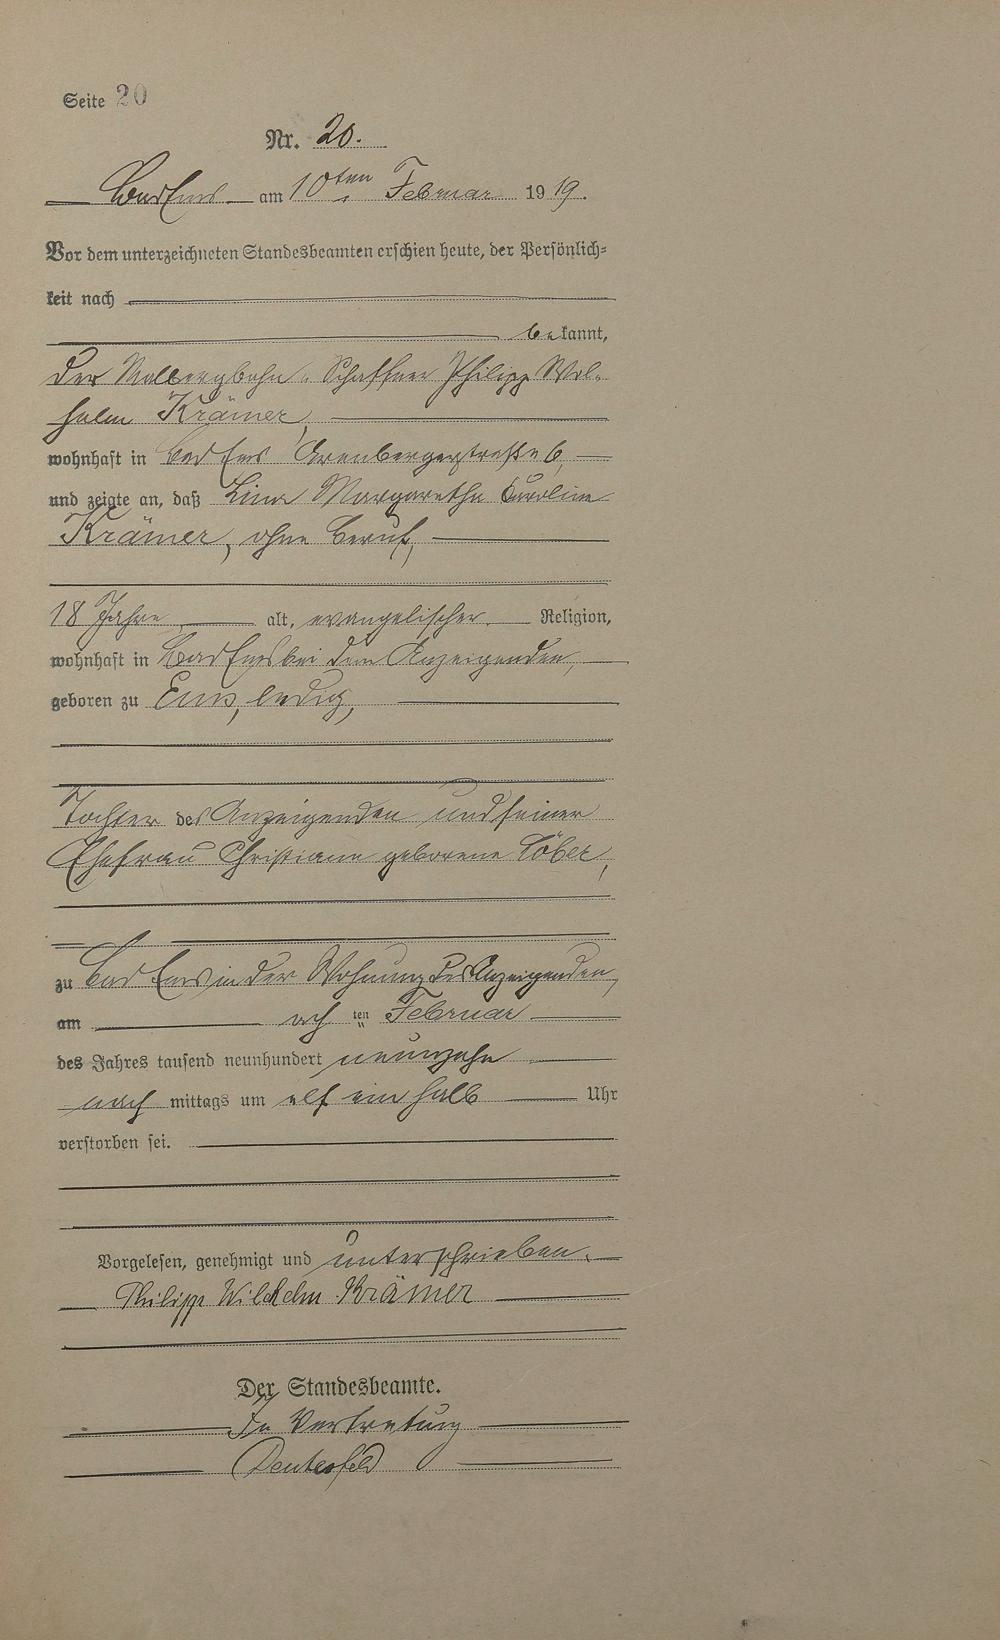 Seite 20
Nr. 20.
Bad Ems am 10ten Februar 1919.
Vor dem unterzeichneten Standesbeamten erschien heute, der Persönlich-
keit nach
bekannt,
der Malbergbahn-Schaffner Philipp Wil-
helm Krämer,
wohnhaft in Bad Ems Arenbergerstraße 6,
und zeigte an, daß Lina Margaretha Caroline
Krämer, ohne Beruf,
18 Jahre alt, evangelischer Religion,
wohnhaft in Bad Ems bei dem Anzeigenden,
geboren zu Ems, ledig,
Tochter des Anzeigenden und seiner
Ehefrau Christiane geborene Löber,
zu Bad Ems in der Wohnung des Anzeigenden,
am ach ten Februar
des Jahres tausend neunhundert neunzehn
nach mittags um elf ein halb Uhr
verstorben sei.
Vorgelesen, genehmigt und unterschrieben.
Philipp Wilhelm Krämer
Der Standesbeamte.
In Vertretung